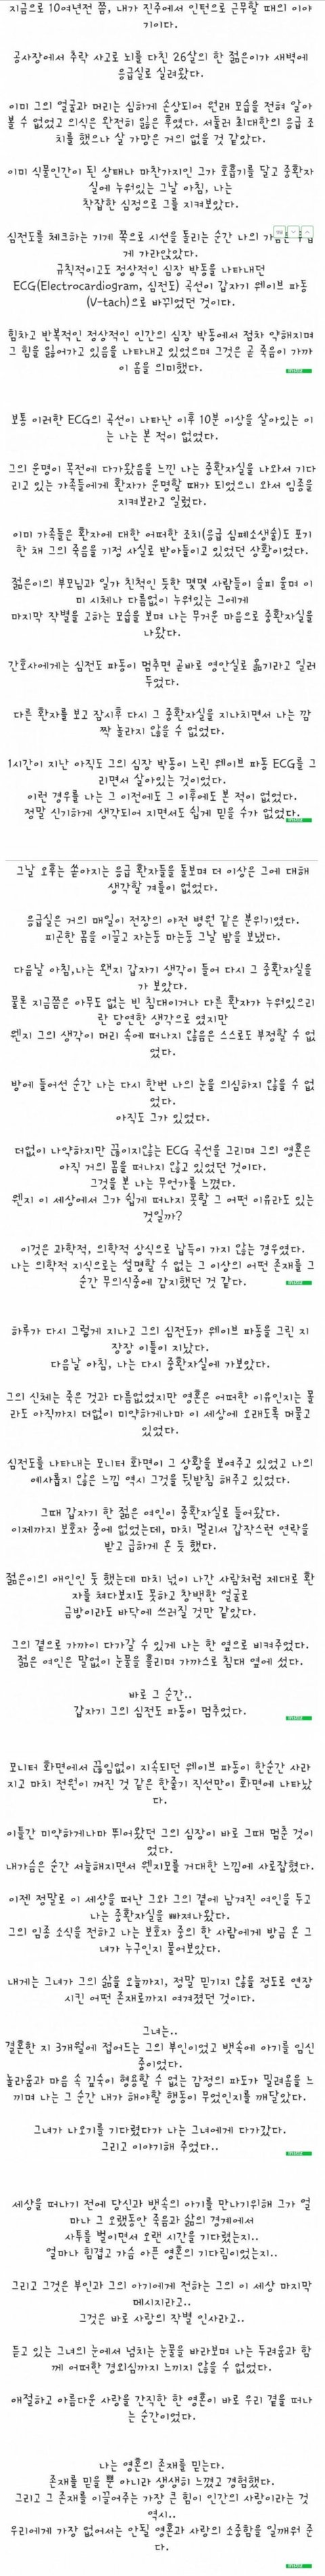 지금으로 10여년전 쯤, 내가 진주에서 인턴으로 근무할 때의 이야
기이다.
공사장에서 추락 사고로 뇌를 다친 26살의 한 젊은이가 새벽에
응급실로 실려왔다.
이미 그의 얼굴과 머리는 심하게 손상되어 원래 모습을 전혀 알아
볼 수 없었고 의식은 완전히 잃은 후였다. 서둘러 최대한의 응급 조
치를 했으나 살 가망은 거의 없을 것 같았다.
이미 식물인간이 된 상태나 마찬가지인 그가 호흡기를 달고 중환자
실에 누워있는 그날 아침, 나는
착잡한 심정으로 그를 지켜보았다.
심전도를 체크하는 기계 쪽으로 시선을 돌리는 순간 나의
게 가라앉았다.
규칙적이고도 정상적인 심장 박동을 나타내던
ECG(Electrocardiogram, 심전도) 곡선이 갑자기 웨이브 파동
(V-tach)으로 바뀌었던 것이다.
힘차고 반복적인 정상적인 인간의 심장 박동에서 점차 약해지며
그 힘을 잃어가고 있음을 나타내고 있었으며 그것은 곧 죽음이 가까
이 옴을 의미했다.
보통 이러한 ECG의 곡선이 나타난 이후 10분 이상을 살아있는 이
는 나는 본 적이 없었다.
그의 운명이 목전에 다가왔음을 느낀 나는 중환자실을 나와서 기다
리고 있는 가족들에게 환자가 운명할 때가 되었으니 와서 임종을
지켜보라고 일렀다.
이미 가족들은 환자에 대한 어떠한 조치(응급 심폐소생술)도 포기
한 채 그의 죽음을 기정 사실로 받아들이고 있었던 상황이었다.
젊은이의 부모님과 일가 친척인 듯한 몇몇 사람들이 슬피 울며 이
미 시체나 다름없이 누워있는 그에게
마지막 작별을 고하는 모습을 보며 나는 무거운 마음으로 중환자실을
나왔다.
간호사에게는 심전도 파동이 멈추면 곧바로 영안실로 옮기라고 일러
두었다.
다른 환자를 보고 잠시후 다시 그 중환자실을 지나치면서 나는 깜
짝 놀라지 않을 수 없었다.
1시간이 지난 아직도 그의 심장 박동이 느린 웨이브 파동 ECG를 그
리면서 살아있는 것이었다.
이런 경우를 나는 그 이전에도 그 이후에도 본 적이 없었다.
정말 신기하게 생각되어 지면서도 쉽게 믿을 수가 없었다.
그날 오후는 쏟아지는 응급 환자들을 돌보며 더 이상은 그에 대해
생각할 겨를이 없었다.
응급실은 거의 매일이 전장의 야전 병원 같은 분위기였다.
피곤한 몸을 이끌고 자는둥 마는둥 그날 밤을 보냈다.
다음날 아침,나는 왠지 갑자기 생각이 들어 다시 그 중환자실을
가 보았다.
물론 지금쯤은 아무도 없는 빈 침대이거나 다른 환자가 누워있으리
란 당연한 생각으로 였지만
웬지 그의 생각이 머리 속에 떠나지 않음은 스스로도 부정할 수 없
었다.
방에 들어선 순간 나는 다시 한번 나의 눈을 의심하지 않을 수 없
었다.
아직도 그가 있었다.
더없이 나약하지만 끊이지않는 ECG 곡선을 그리며 그의 영혼은
아직 거의 몸을 떠나지 않고 있었던 것이다.
그것을 본 나는 무언가를 느꼈다.
웬지 이 세상에서 그가 쉽게 떠나지 못할 그 어떤 이유라도 있는
것일까?
이것은 과학적, 의학적 상식으로 납득이 가지 않는 경우였다.
나는 의학적 지식으로는 설명할 수 없는 그 이상의 어떤 존재를 그
순간 무의식중에 감지했던 것 같다.
하루가 다시 그렇게 지나고 그의 심전도가 웨이브 파동을 그린 지
장장 이틀이 지났다.
다음날 아침, 나는 다시 중환자실에 가보았다.
그의 신체는 죽은 것과 다름없었지만 영혼은 어떠한 이유인지는 몰
라도 아직까지 더없이 미약하게나마 이 세상에 오래도록 머물고
있었다.
심전도를 나타내는 모니터 화면이 그 상황을 보여주고 있었고 나의
예사롭지 않은 느낌 역시 그것을 뒷받침 해주고 있었다.
그때 갑자기 한 젊은 여인이 중환자실로 들어왔다.
이제까지 보호자 중에 없었는데, 마치 멀리서 갑작스런 연락을
받고 급하게 온 듯 했다.
젊은이의 애인인 듯 했는데 마치 넋이 나간 사람처럼 제대로 환
자를 쳐다보지도 못하고 창백한 얼굴로
금방이라도 바닥에 쓰러질 것만 같았다.
그의 곁으로 가까이 다가갈 수 있게 나는 한 옆으로 비켜주었다.
젊은 여인은 말없이 눈물을 흘리며 가까스로 침대 옆에 섰다.
바로 그 순간..
갑자기 그의 심전도 파동이 멈추었다.
모니터 화면에서 끊임없이 지속되던 웨이브 파동이 한순간 사라
지고 마치 전원이 꺼진 것 같은 한줄기 직선만이 화면에 나타났
다.
이틀간 미약하게나마 뛰어왔던 그의 심장이 바로 그때 멈춘 것이
었다.
내가슴은 순간 서늘해지면서 웬지모를 거대한 느낌에 사로잡혔다.
이젠 정말로 이 세상을 떠난 그와 그의 곁에 남겨진 여인을 두고
나는 중환자실을 빠져나왔다.
그의 임종 소식을 전하고 나는 보호자 중의 한 사람에게 방금 온 그
녀가 누구인지 물어보았다.
내게는 그녀가 그의 삶을 오늘까지, 정말 믿기지 않을 정도로 연장
시킨 어떤 존재로까지 여겨졌던 것이다.
그녀는..
결혼한 지 3개월에 접어드는 그의 부인이었고 뱃속에 아기를 임신
중이었다.
놀라움과 마음 속 깊숙이 형용할 수 없는 감정의 파도가 밀려옴을 느
끼며 나는 그 순간 내가 해야할 행동이 무엇인지를 깨달았다.
그녀가 나오기를 기다렸다가 나는 그녀에게 다가갔다.
그리고 이야기해 주었다..
세상을 떠나기 전에 당신과 뱃속의 아기를 만나기위해 그가 얼
마나 그 오랬동안 죽음과 삶의 경계에서
사투를 벌이면서 오랜 시간을 기다렸는지..
얼마나 힘겹고 가슴 아픈 영혼의 기다림이었는지..
그리고 그것은 부인과 그의 아기에게 전하는 그의 이 세상 마지막
메시지라고..
그것은 바로 사랑의 작별 인사라고..
듣고 있는 그녀의 눈에서 넘치는 눈물을 바라보며 나는 두려움과 함
께 어떠한 경외심까지 느끼지 않을 수 없었다.
애절하고 아름다운 사랑을 간직한 한 영혼이 바로 우리 곁을 떠나
는 순간이었다.
나는 영혼의 존재를 믿는다.
존재를 믿을 뿐 아니라 생생히 느꼈고 경험했다.
그리고 그 존재를 이끌어주는 가장 큰 힘이 인간의 사랑이라는 것
역시..
우리에게 가장 없어서는 안될 영혼과 사랑의 소중함을 일깨워 준
다.